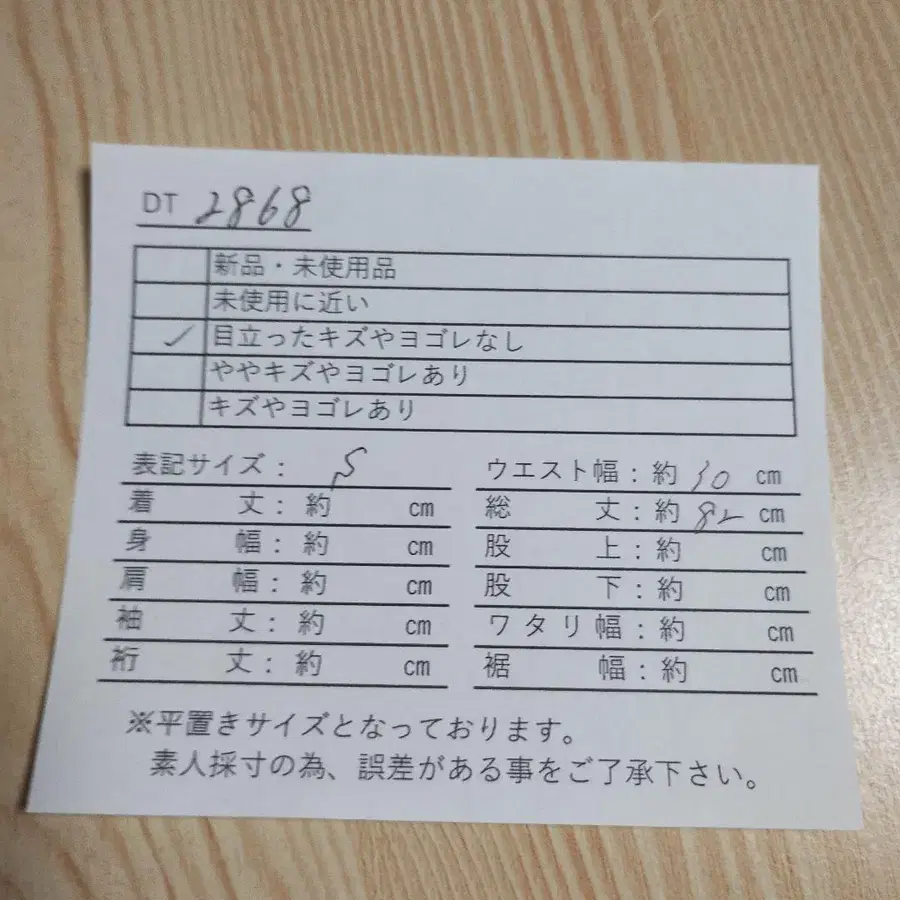 DT 2868
新品・未使用品
未使用に近い
✓ 目立ったキズやヨゴレなし
ややキズやヨゴレあり
キズやヨゴレあり
表記サイズ: S
着丈:約 cm
身幅:約 cm
肩幅:約 cm
袖丈:約 cm
裄丈:約 cm
ウエスト幅:約 cm
総丈:約 82 cm
股上:約 cm
股下:約 cm
ワタリ幅:約 cm
裾幅:約 cm
※平置きサイズとなっております。
素人採寸の為、誤差がある事をご了承下さい。